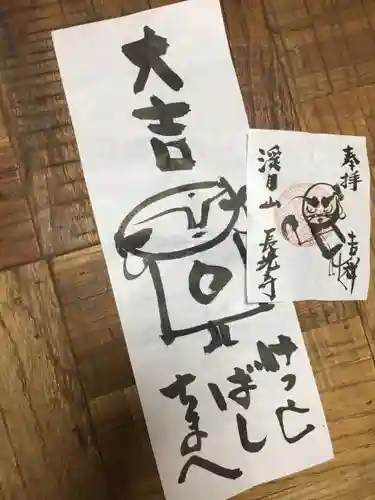 大吉
けっとばし
ちまへ
奉拝
吉祥
浮目山 長光寺